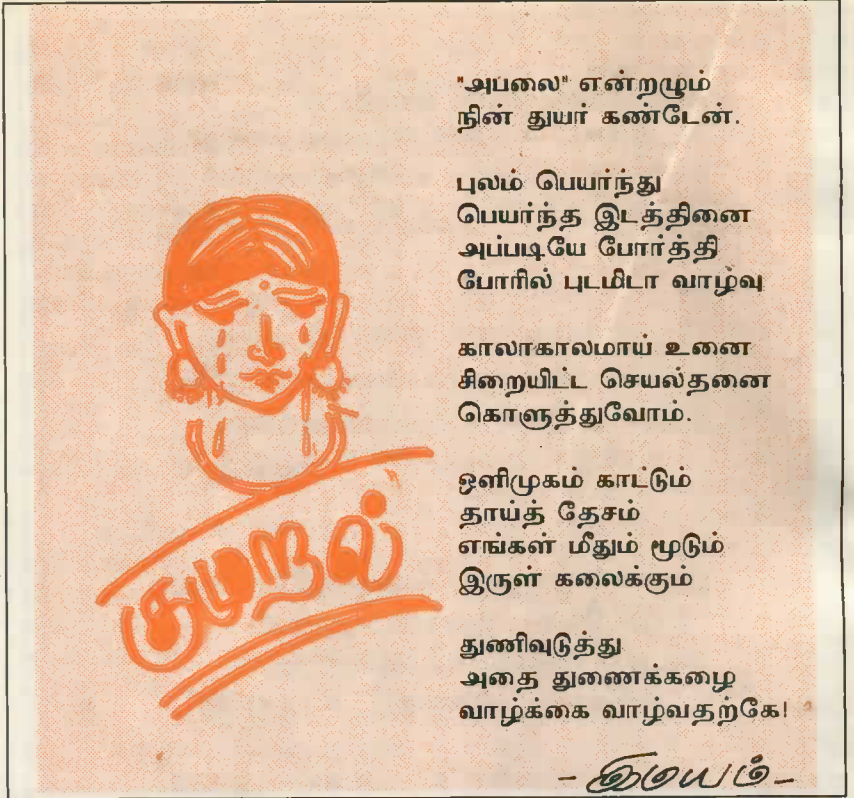 குமுறல்
"அபலை" என்றழும்
நின் துயர் கண்டேன்.
புலம் பெயர்ந்து
பெயர்ந்த இடத்தினை
அப்படியே போர்த்தி
போரில் புடமிடா வாழ்வு
காலாகாலமாய் உனை
சிறையிட்ட செயல்தனை
கொளுத்துவோம்.
ஒளிமுகம் காட்டும்
தாய்த் தேசம்
எங்கள் மீதும் மூடும்
இருள் கலைக்கும்
துணிவுடுத்து
அதை துணைக்கழை
வாழ்க்கை வாழ்வதற்கே!
- இமயம் -